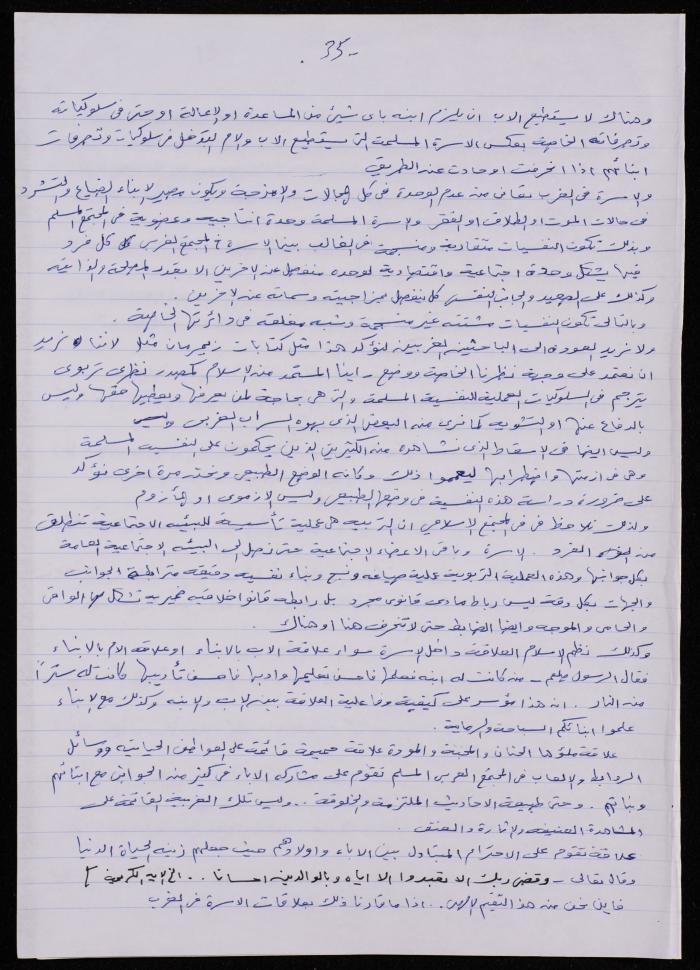 -35-
وهناك لا يستطيع الاب ان يلزم ابنه باى شيئ من المساعدة او الإعالة او حتى فى سلوكياته
وتصرفاته الخاصة بعكس الاسرة المسلمة التى يستطيع الاب والام التدخل فى سلوكيات وتصرفات
ابنائهم اذا انحرفت او حادت عن الطريق
والاسرة فى الغرب تعانى من عدم الوحدة فى كل المجالات والامزجة ويكون مصير الابناء الضياع والتشرد
فى حالات الموت او الطلاق او الفقر والاسرة المسلمة وحدة انتاجيه وعضوية فى المجتمع المسلم
وبذلك تكون النفسيات متقاربة ومنسجمة فى الغالب بينما الاسرة فى المجتمع الغربى كل فرد
فيها يشكل وحدة اجتماعية واقتصادية لوحده منفصل عن الاخرين الا بقدر المصلحة والذاتية
وكذلك على الصعيد والجانب النفسى كل ينفصل بمزاجيته وسماته عن الاخرين .
وبالتالى تكون النفسيات مشتته غير منسجمة وشبه مغلقه فى دائرتها الخاصة .
ولا نريد العودة الى الباحثين الغربيين لنؤكد هذا مثل كتابات زيمرمان مثلا لاننا نريد
ان نعتمد على وجهة نظرنا الخاصة ووضوح رأينا المستمد من الاسلام كمصدر نظرى تربوى
يترجم فى السلوكيات العملية للنفسية المسلمة والتى هى بحاجة لمن يعرفها ويعطيها حقها وليس
بالدفاع عنها او التشويه كما نرى من البعض الذى يهوه السراب الغربى
وليس ايضا فى الإسقاط الذى نشاهده من الكثيرين الذين يحكمون على النفسية المسلمة
وهى فى ازمتها واضطرابها ليعمموا ذلك وكأنه الوضع الطبيعى ونحن مرة اخرى نؤكد
على ضرورة دراسة هذه النفسية فى وضعها الطبيعى وليس الازموى او المأزوم
ولذلك نلاحظ فى المجتمع الإسلامي ان التربيه هى عملية تأسيسية للبيئه الاجتماعية تنطلق
من الفرد . الاسرة وباقى الاعضاء الاجتماعية حتى نصل الى البيئه الاجتماعية العامة
بكل جوانبها وهذه العملية التربوية عملية صياغه ونسج وبناء نفسيه دقيقه مترابطة الجوانب
والجهات بكل دقة ليس رباط مادى قانونى مجرد بل رابطه قانو اخلاقيه ضميريه تشكل الواقى
والحامى والموجه وايضا الضابط حتى لا تنحرف هنا او هناك .
وكذلك نظم الإسلام العلاقة داخل الاسرة سواء علاقة الاب بالابناء او علاقه الام بالابناء
فقال الرسول صلعم - من كانت له ابنه فعلمها فاحسن تعليمها وادبها فاحسن تأديبها كانت له ستراً
من النار . ان هذا مؤسس على كيفية وفاعلية العلاقة بين الاب والابنه وكذلك مع الابناء
علموا ابنائكم السباحة والرماية .
علاقة ملؤها الحنان والمحبة والمودة علاقة حميمة قائمة على العواطف الحياتيه ووسائل
الروابط والالعاب فى المجتمع العربى المسلم تقوم على مشاركه الاباء فى كثير من الجوانب مع ابنائهم
وبناتهم . وحتى طبيعة الاحاديث الملتزمة والخلوقة .. وليس تلك الغربية القائمة على
المشاهدة العنيفه والاثارة والعنف .
علاقة تقوم على الاحترام المتبادل بين الاباء واولادهم حيث جعلهم زينه الحياة الدنيا
وقال تعالى - وقضى ربك الا تعبدوا الا اياه وبالوالدين احسانا .. الخ الايه الكريمة ]
فاين نحن من هذه القيم .. اذا ما قارنا ذلك بعلاقات الاسرة فى الغرب